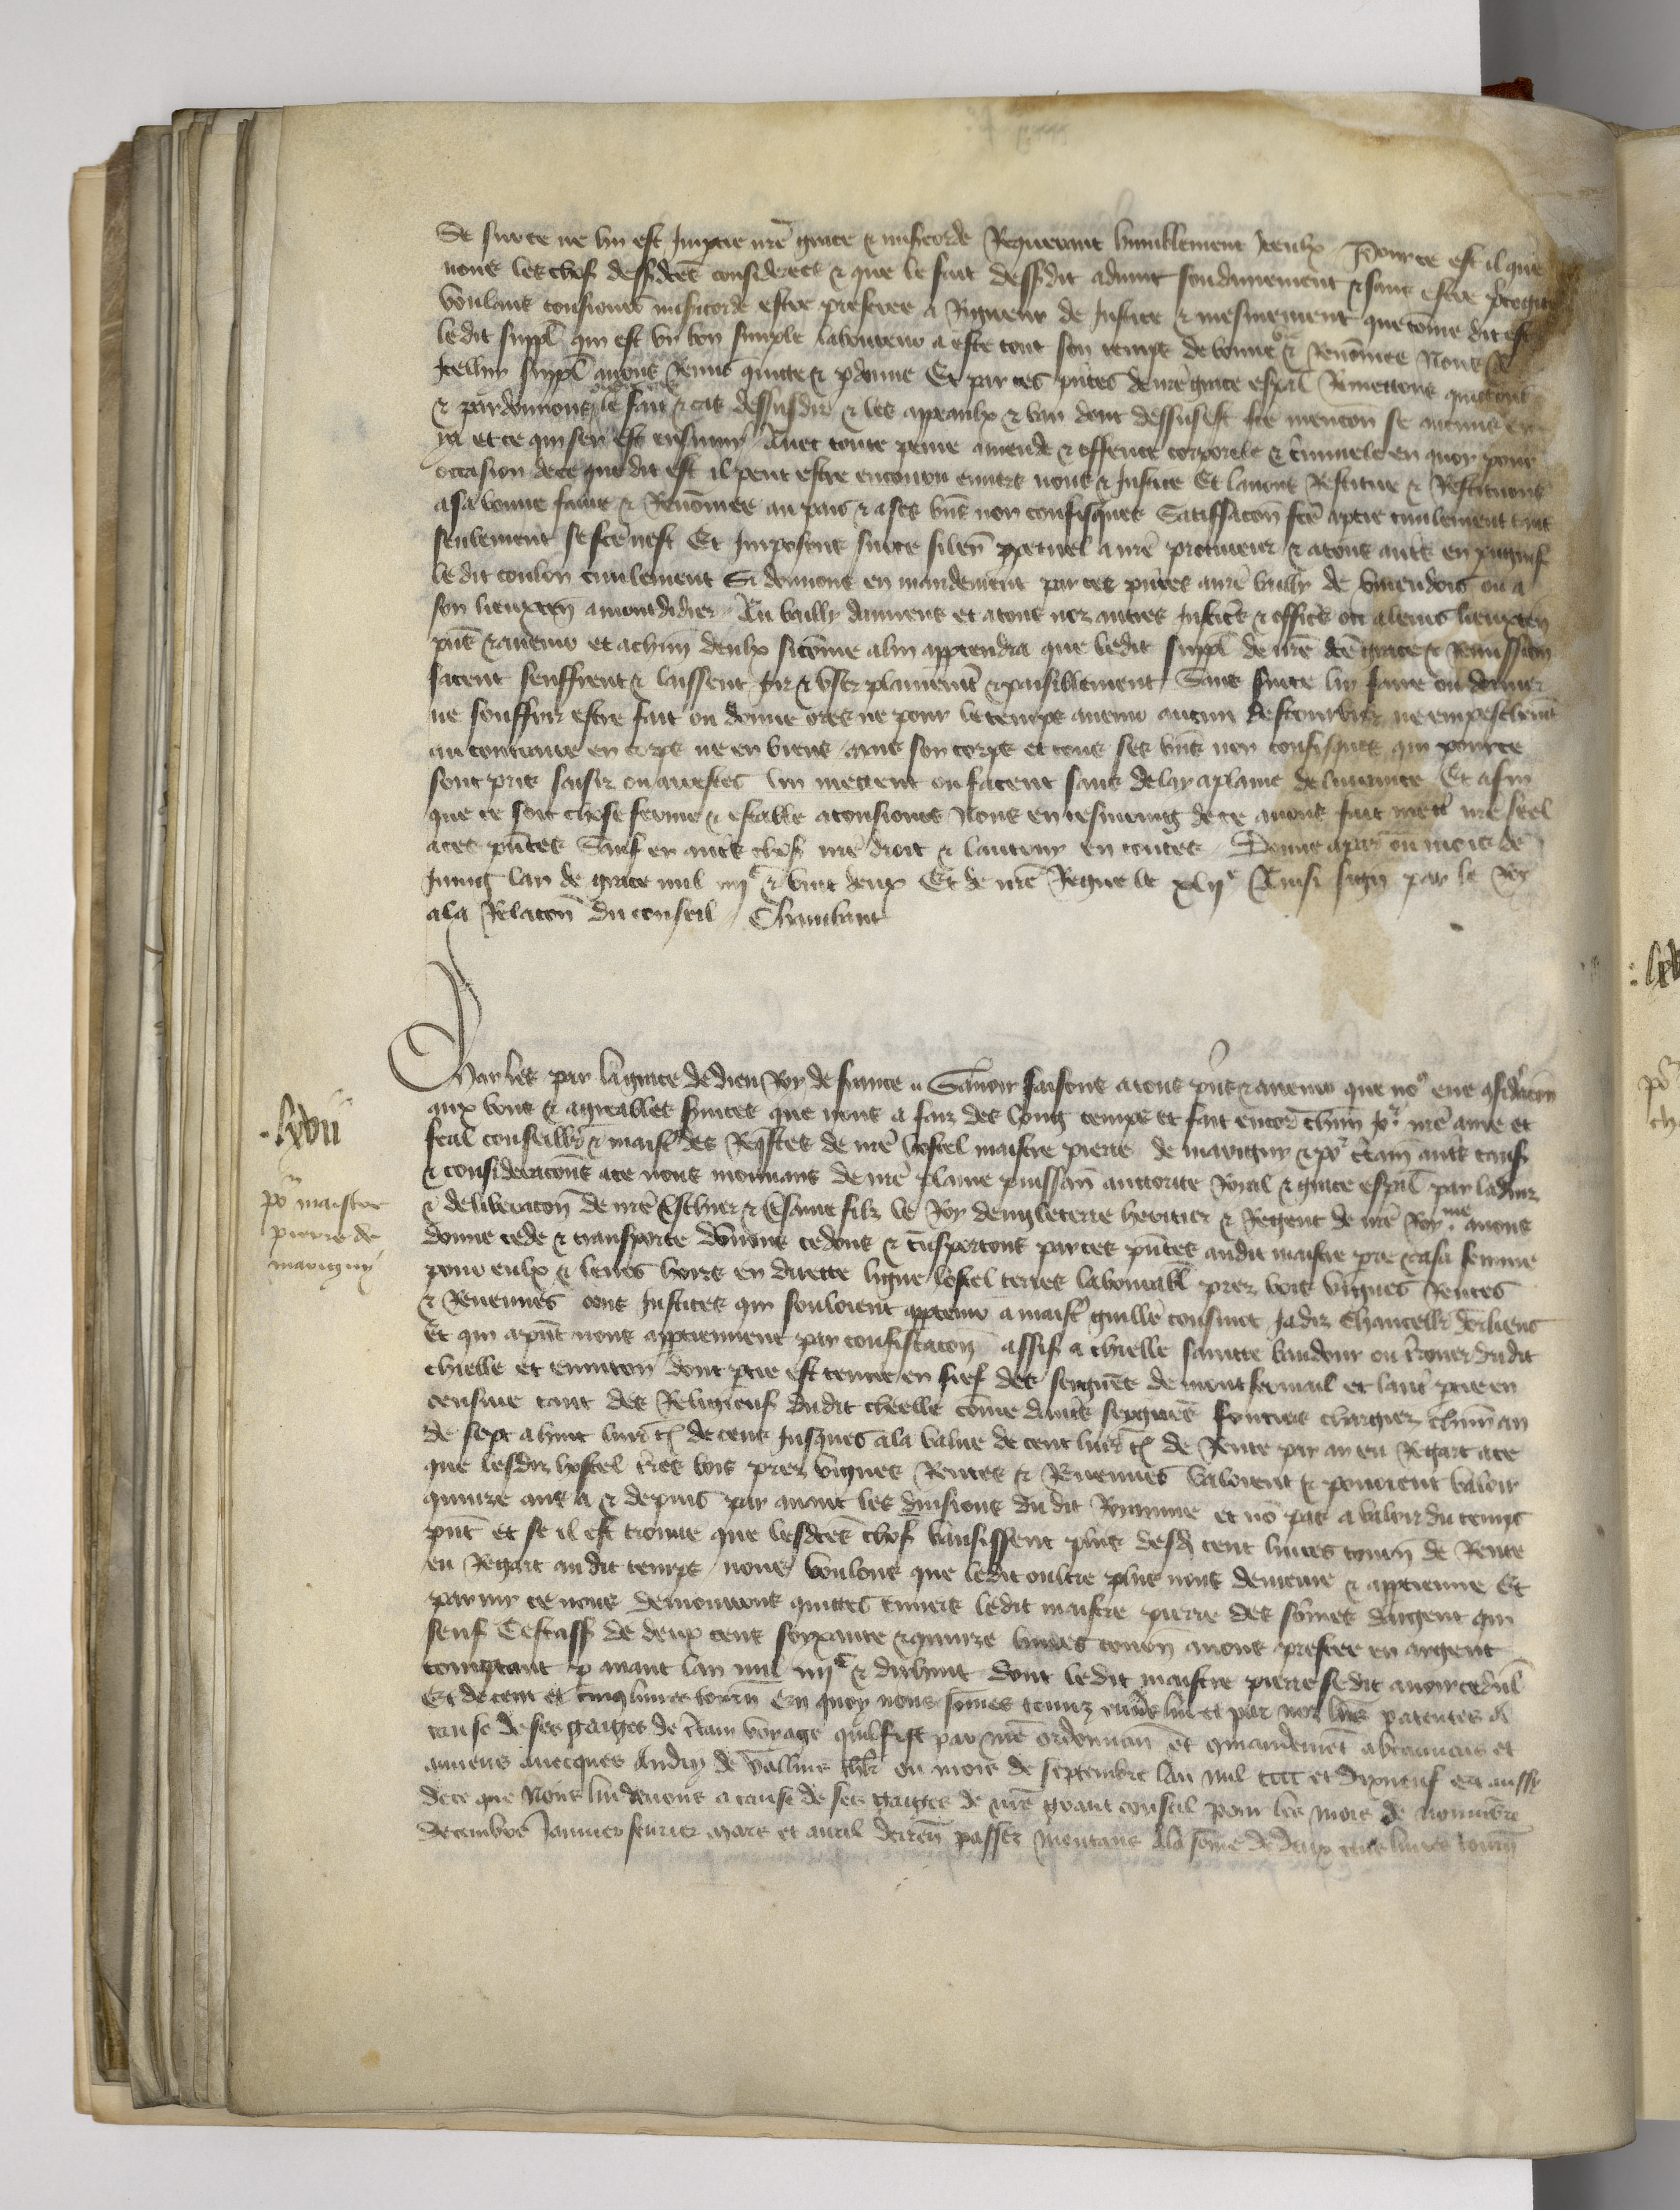 Se sur ce ne lui est Impartie nr̄e grace & misericorde Requerant humblement Iceulx Pour ce est il que
nous les choses dessusd̄ctes considerees & que le fait dessusdit advint soudainement & sans estre
voulans tousiours misericorde estre preferee a Rigueur de Justice & mesmement que cōme dit est
ledit suppl̄ qui est vn bon simple laboureur a este tout son temps de bonne vie & Renōmee Nous
Icellui suppl̄ auons Remis quitte & p̱donne Et par ces pn̄tes de nr̄e grace esp̄al Remettons quittons
& pardonnons le fait & cas dessusdit & les appeaulx & ban dont dessus est fc̄e mencōn se aucuns en
ya et ce qui sen est ensuiuy Auec toute peine amende & offence corporele & c̄minele en quoy pour
occasion de ce que dit est il peut estre encouru enuers nous & Justice Et lauons Restitue & Restituons
a sa bonne fame & Renōmee au pais & a ses biēs non confisquez Satiffacōn fc̄e a partie ciuilement tant
seulement se fc̄e nest Et Imposons sur ce silen̄ p̱petuel a nr̄e procureur & a tous aut̄s en
ledit coulon ciuilement Si donnons en mandement par ces pn̄tes au nr̄e bailly de vermendois ou a
son lieuxten̄ a mondidier Au bailly damiens et a tous noz autres Justic̄s & offic̄s ou a leurs lieuxten̄
pn̄s & auenir et a chūn deulx sicōme a lui app̱tendra que ledit suppl̄ de nr̄e d̄ce grace & Remission
facent seuffrent & laissent Joir & vser plainemēt & paisiblement Sans sur ce lui faire ou donner
ne souffrir estre fait ou donne ores ne pour le temps auenir aucun destourbier ne empeschemēt
au contraire en corps ne en biens ains son corps et tous ses biēs non confisquez qui pource
sont pris saisiz ou arrestez lui mettent ou facent sans delay a plaine deliurance Et afin
que ce soit chose ferme & estable a tousiours Nous en tesmoing de ce auons fait mett̄ nr̄e seel
a ces pn̄tes Sauf en aut̄s choses nr̄e droit & lautruy en toutes Donne a par̄ ou mois de
Juing lan de grace mil iiijc & vint deux Et de nr̄e Regne le xlije Ainsi sign̄ par le Roy
a la Relacōn du conseil Chambaut

Charles par la grace de dieu Roy de france &c Sauoir faisons a tous pn̄s & auenir que no9 eue 9sid̄acōn
aux bons & agreables seruices que nous a faiz des long temps et fait encor̄ chūn Jor nr̄e ame et
feal conseill̄r & maist̄ des Req̄stes de nr̄e hostel maistre pierre de marigny & por c̄tain̄ aut̄s causes
& consideracōns a ce nous mouuans de nr̄e plaine puissan̄ auctorite Royal & grace esp̄al par laduiz
& deliberacōn de nr̄e treschier & tresame filz le Roy dengleterre heritier & Regent de nr̄e Royme auons
donne cede & transporte donnons cedons & t̄nsportons par ces pn̄tes audit maistre pre & a sa femme
pour eulx & leurs hoirs en directe ligne lostel terres labourabl̄ prez bois vignes Rentes
& Reuenues cens Justices qui souloient app̱tenir a maist̄ guill̄e cousinot Jadiz Chancell̄r dorliens
Et qui a pn̄t nous app̱tiennent par confiscacōn assis a chielle saincte baudour ou t̄rouer dudit
chielle et enuiron dont p̱tie est tenue en fief des seigneurs de montfermail et laut̄ p̱tie en
censiue tant des Religieuses dudit cheelle cōme daut̄s seigneurs fonciers chargiez chūn an
de sept a huit liur̄ t̄ de cens Jusques a la value de cent liur̄ t̄ de Rente par an eu Regart a ce
que lesdiz hostel t̄res bois prez vignes Rentes & Reuenues valoient & pouoient valoir
quinze ans a & depuis par auant les diuisions dudit Royaume et nō pas a valoir du temps
pn̄t et se il est trouue que lesd̄ctes choses vausissent plus desd̄ cent liures tourn̄ de Rente
eu Regart audit temps nous voulons que ledit oultre plus nous demeure & app̱tienne Et
parmi ce nous demourrons quittes enuers ledit maistre pierre des sōmes dargent qui
senss̄ Cestass̄ de deux cens soixante & quinze liures tourn̄ a nous prestee en argent
comptant p̱ auant lan mil iiijc & dixhuit dont ledit maistre pierre se dit auoir cedul̄
Et de cent et cinq liures tourn̄ En quoy nous sōmes tenuz enūs lui et par noz lr̄es patentes a
cause de ses gaiges de c̄tain voyage quil fist par nr̄e ordonnan̄ et 9mandemēt a beauuais et
amiens auecques Andry de vallins ch̄lr ou mois de septembre lan mil cccc et dixneuf Et aussy
de ce que Nous lui deuons a cause de ses gaiges de nr̄e grant conseil pour les mois de nouuēbre
decembre Januier feurier mars et auril derren̄ passez montans a la sōme de deux cens liures tourn̄
.lxvii
por maistre
pierre de
marigny